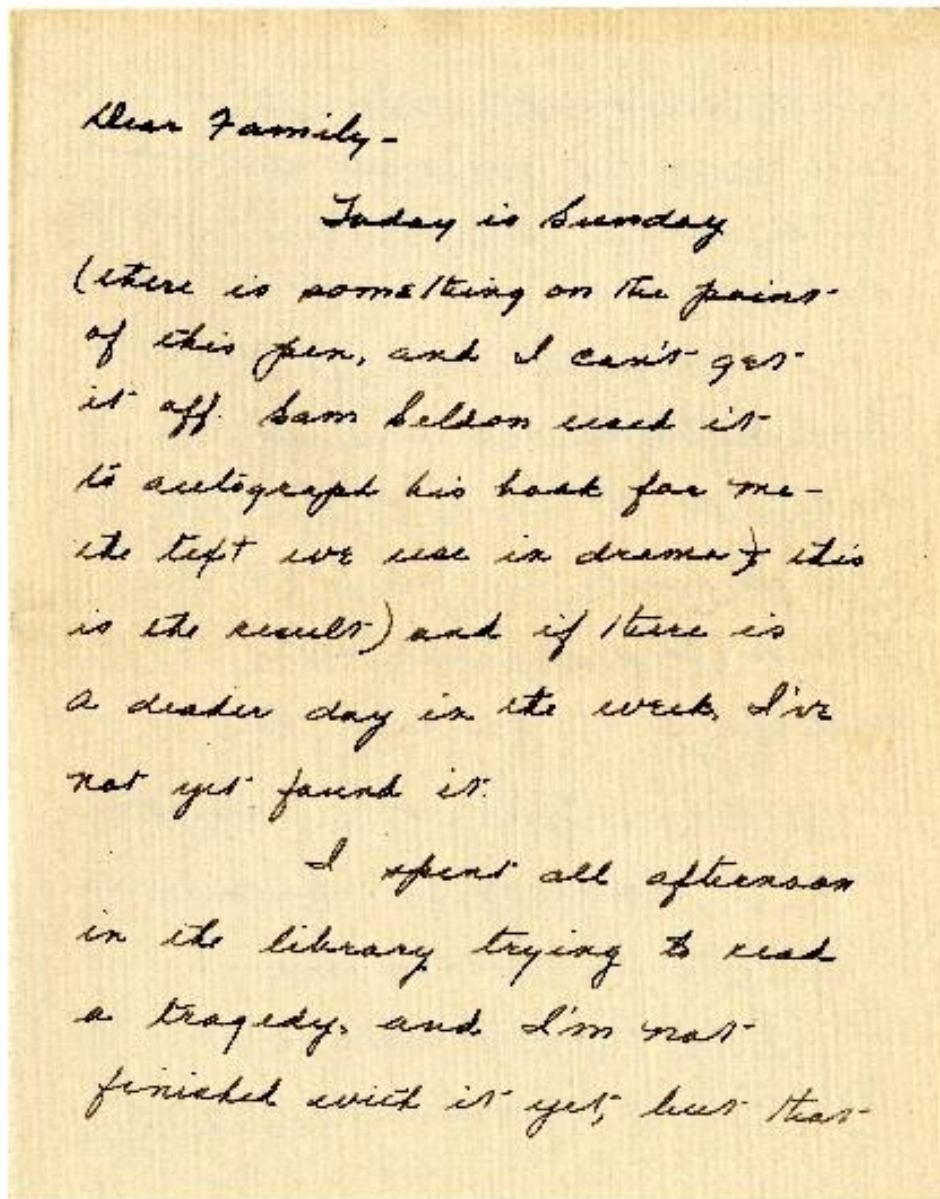 Dear Family -
Today is Sunday
(there is something on the point
of this pen, and I can't get
it off. Sam Seldon used it
to autograph his book for me -
the text we use in drama & this
is the result) and if there is
a deader day in the week, I've
not yet found it.
I spent all afternoon
in the library trying to read
a tragedy, and I'm not
finished with it yet, but that